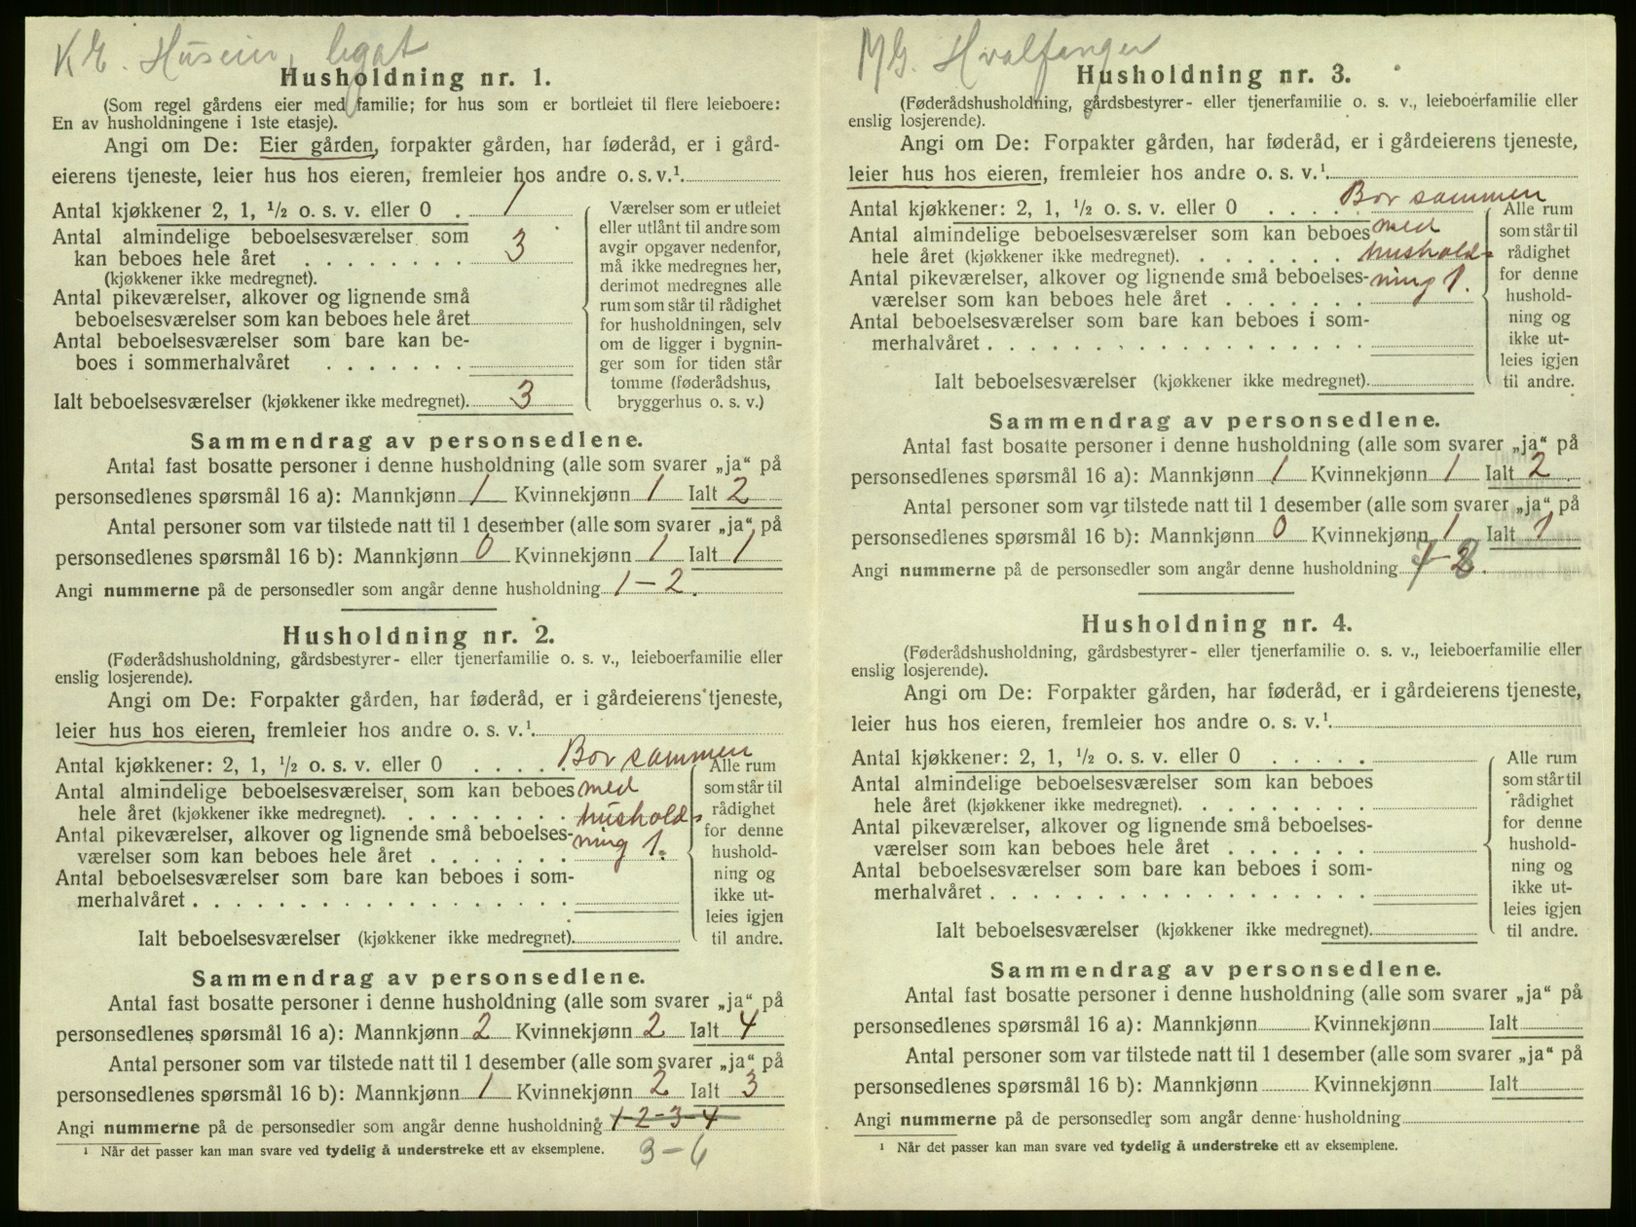 K E. Huseier, legat
Husholdning nr. 1.
(Som regel gårdens eier med familie; for hus som er bortleiet til flere leieboere:
En av husholdningene i 1ste etasje).
Angi om De: Eier gården, forpakter gården, har føderåd, er i gård-
eierens tjeneste, leier hus hos eieren, fremleier hos andre o. s. v.¹
Antal kjøkkener 2, 1, ½ o. s. v. eller 0 . 1
Antal almindelige beboelsesværelser som
kan beboes hele året . . . . . . . . 3
(kjøkkener ikke medregnet).
Antal pikeværelser, alkover og lignende små
beboelsesværelser som kan beboes hele året
Antal beboelsesværelser som bare kan be-
boes i sommerhalvåret . . . . . . .
Ialt beboelsesværelser (kjøkkener ikke medregnet). 3
Værelser som er utleiet
eller utlånt til andre som
avgir opgaver nedenfor,
må ikke medregnes her,
derimot medregnes alle
rum som står til rådighet
for husholdningen, selv
om de ligger i bygnin-
ger som for tiden står
tomme (føderådshus,
bryggerhus o. s. v.)
Sammendrag av personsedlene.
Antal fast bosatte personer i denne husholdning (alle som svarer „ja“ på
personsedlenes spørsmål 16 a): Mannkjønn 1 Kvinnekjønn 1 Ialt 2
Antal personer som var tilstede natt til 1 desember (alle som svarer „ja“ på
personsedlenes spørsmål 16 b): Mannkjønn 0 Kvinnekjønn 1 Ialt 1
Angi nummerne på de personsedler som angår denne husholdning 1–2.
Husholdning nr. 2.
(Føderådshusholdning, gårdsbestyrer- eller tjenerfamilie o. s. v., leieboerfamilie eller
enslig losjerende).
Angi om De: Forpakter gården, har føderåd, er i gårdeierens tjeneste,
leier hus hos eieren, fremleier hos andre o. s. v.¹
Antal kjøkkener: 2, 1, ½ o. s. v. eller 0 . . . . . Bor sammen
Antal almindelige beboelsesværelser som kan beboes med
hele året (kjøkkener ikke medregnet). . . . . . . . . hushold-
Antal pikeværelser, alkover og lignende små beboelses- ning 1.
værelser som kan beboes hele året . . . . . . .
Antal beboelsesværelser som bare kan beboes i som-
merhalvåret . . . . . . . . . . . . . . . . . .
Ialt beboelsesværelser (kjøkkener ikke medregnet).
Alle rum
som står til
rådighet
for denne
hushold-
ning og
ikke ut-
leies igjen
til andre.
Sammendrag av personsedlene.
Antal fast bosatte personer i denne husholdning (alle som svarer „ja“ på
personsedlenes spørsmål 16 a): Mannkjønn 2 Kvinnekjønn 2 Ialt 4
Antal personer som var tilstede natt til 1 desember (alle som svarer „ja“ på
personsedlenes spørsmål 16 b): Mannkjønn 1 Kvinnekjønn 2 Ialt 3
Angi nummerne på de personsedler som angår denne husholdning 1-2-3-4
¹ Når det passer kan man svare ved tydelig å understreke ett av eksemplene. 3–6
M G. Hvalfanger
Husholdning nr. 3.
(Føderådshusholdning, gårdsbestyrer- eller tjenerfamilie o. s. v., leieboerfamilie eller
enslig losjerende).
Angi om De: Forpakter gården, har føderåd, er i gårdeierens tjeneste,
leier hus hos eieren, fremleier hos andre o. s. v.¹
Antal kjøkkener: 2, 1, ½ o. s. v. eller 0 . . . . Bor sammen
Antal almindelige beboelsesværelser som kan beboes med
hele året (kjøkkener ikke medregnet). . . . . . . . hushold-
Antal pikeværelser, alkover og lignende små beboelses- ning 1.
værelser som kan beboes hele året . . . . . . .
Antal beboelsesværelser som bare kan beboes i som-
merhalvåret . . . . . . . . . . . . . . . . . .
Ialt beboelsesværelser (kjøkkener ikke medregnet).
Alle rum
som står til
rådighet
for denne
hushold-
ning og
ikke ut-
leies igjen
til andre.
Sammendrag av personsedlene.
Antal fast bosatte personer i denne husholdning (alle som svarer „ja“ på
personsedlenes spørsmål 16 a): Mannkjønn 1 Kvinnekjønn 1 Ialt 2
Antal personer som var tilstede natt til 1 desember (alle som svarer „ja“ på
personsedlenes spørsmål 16 b): Mannkjønn 0 Kvinnekjønn 1 Ialt 1
Angi nummerne på de personsedler som angår denne husholdning 7–8.
Husholdning nr. 4.
(Føderådshusholdning, gårdsbestyrer- eller tjenerfamilie o. s. v., leieboerfamilie eller
enslig losjerende).
Angi om De: Forpakter gården, har føderåd, er i gårdeierens tjeneste,
leier hus hos eieren, fremleier hos andre o. s. v.¹
Antal kjøkkener: 2, 1, ½ o. s. v. eller 0 . . . . .
Antal almindelige beboelsesværelser som kan beboes
hele året (kjøkkener ikke medregnet). . . . . . . . .
Antal pikeværelser, alkover og lignende små beboelses-
værelser som kan beboes hele året . . . . . . .
Antal beboelsesværelser som bare kan beboes i som-
merhalvåret . . . . . . . . . . . . . . . . . .
Ialt beboelsesværelser (kjøkkener ikke medregnet).
Alle rum
som står til
rådighet
for denne
hushold-
ning og
ikke ut-
leies igjen
til andre.
Sammendrag av personsedlene.
Antal fast bosatte personer i denne husholdning (alle som svarer „ja“ på
personsedlenes spørsmål 16 a): Mannkjønn Kvinnekjønn Ialt
Antal personer som var tilstede natt til 1 desember (alle som svarer „ja“ på
personsedlenes spørsmål 16 b): Mannkjønn Kvinnekjønn Ialt
Angi nummerne på de personsedler som angår denne husholdning
¹ Når det passer kan man svare ved tydelig å understreke ett av eksemplene.